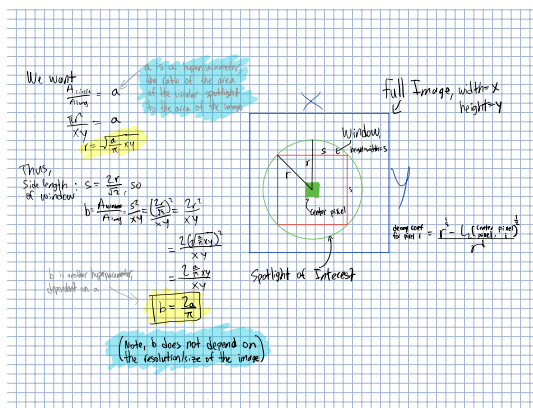 We want
A circle / A img = a
a is a hyperparameter,
the ratio of the area
of the circular spotlight
to the area of the image
πr² / xy = a
r = √(a/π xy)
Thus,
Side length of window : s = 2r/√2, so
b = A window / A img = s²/xy = (2r/√2)²/xy = 2r²/xy
= 2(√(a/π xy))² / xy
= 2 a/π xy / xy
b is another hyperparameter,
dependent on a
b = 2a/π
(Note, b does not depend on
the resolution/size of the image)
X
Full Image, width = x
height = y
Window,
s
r
r
s
center pixel
Y
Spotlight of Interest